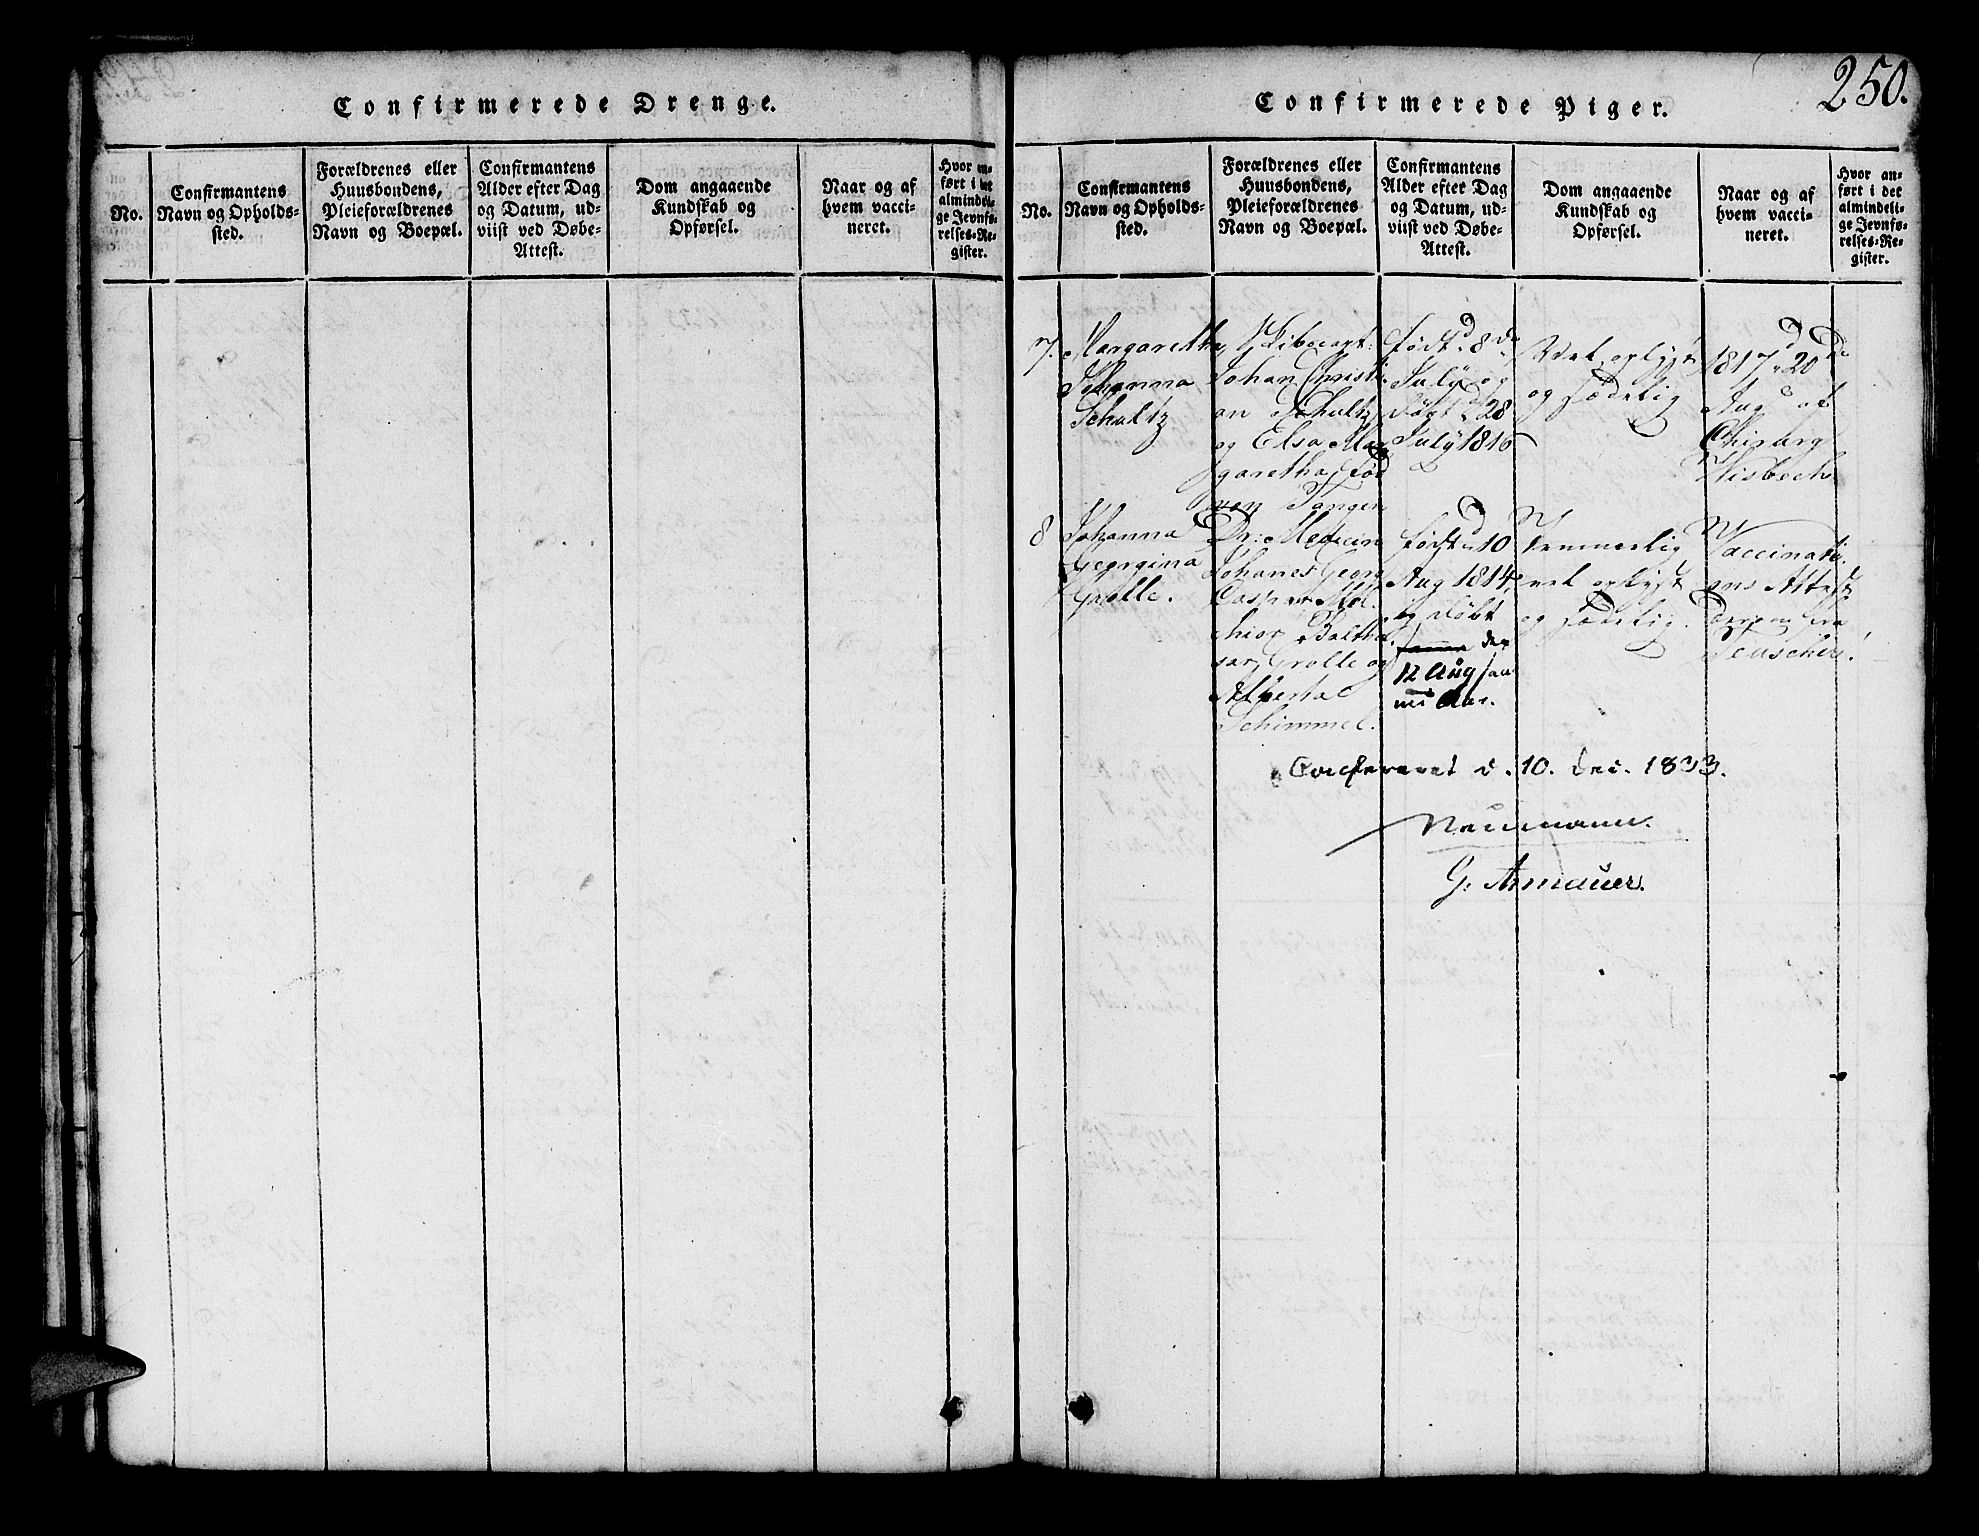 Confirmerede Drenge.
No.
Confirmantens
Navn og Opholds-
sted.
Forældrenes eller
Huusbondens,
Pleieforældrenes
Navn og Boepæl.
Confirmantens
Alder efter Dag
og Datum, ud-
viist ved Døbe-
Attest.
Dom angaaende
Kundskab og
Opførsel.
Naar og af
hvem vacci-
neret.
Hvor an-
ført i det
almindeli-
ge Jevnfø-
relses-Re-
gister.
250.
Confirmerede Piger.
No.
Confirmantens
Navn og Opholds-
sted.
Forældrenes eller
Huusbondens,
Pleieforældrenes
Navn og Boepæl.
Confirmantens
Alder efter Dag
og Datum, ud-
viist ved Døbe-
Attest.
Dom angaaende
Kundskab og
Opførsel.
Naar og af
hvem vacci-
neret.
Hvor an-
ført i det
almindeli-
ge Jevnfø-
relses-Re-
gister.
7.
Margaretha
Johanna
Schultz
Johan Christi-
an Schultz
og Elsa Mar
garetha, fød
von Tangen
født d. 8de
July og
døbt d. 28
July 1816
Vel oplyst
og sædelig
1817 d. 20de
Aug af
Chirurg
Wisbech
8
Johanna
Georgina
Grolle.
Dr: Medicin
Johanes Georg
Casper Mel-
chior Baltha
sar Grolle og
Alberta
Schimmel.
født d. 10
Aug 1814,
og døbt
samme den
12 Aug sam
me Aar.
Temmelig
vel oplyst
og sædelig.
Vaccinati-
ons Attest
fra
Teuscher.
d. 10. Dec. 1833.
Neumann.
G. Armauer.